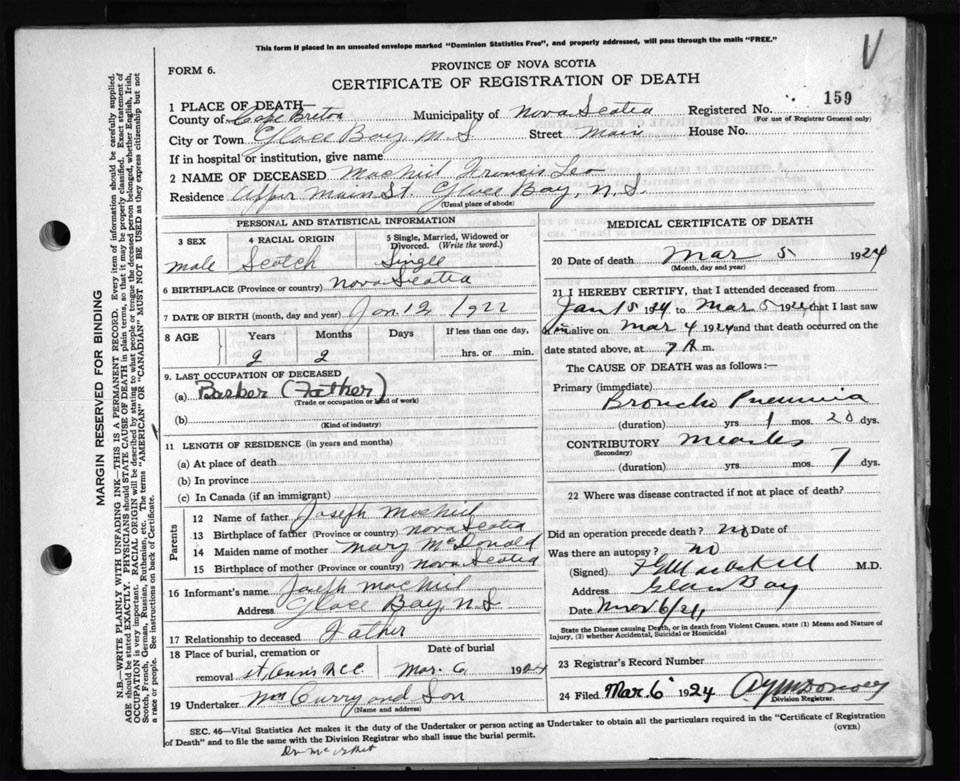 This form if placed in an unsealed envelope marked "Dominion Statistics Free", and properly addressed, will pass through the mails "FREE."
V
FORM 6.
PROVINCE OF NOVA SCOTIA
CERTIFICATE OF REGISTRATION OF DEATH
159
1 PLACE OF DEATH—
County of Cape Breton Municipality of Nova Scotia Registered No.
(For use of Registrar General only)
City or Town Glace Bay N.S Street Main House No.
If in hospital or institution, give name
2 NAME OF DECEASED MacNeil Francis Leo
Residence Upper Main St. Glace Bay, N.S.
(Usual place of abode)
PERSONAL AND STATISTICAL INFORMATION
3 SEX 4 RACIAL ORIGIN 5 Single, Married, Widowed or Divorced. (Write the word.)
male Scotch Single
6 BIRTHPLACE (Province or country) Nova Scotia
7 DATE OF BIRTH (month, day and year) Jan. 12 1922
8 AGE Years Months Days If less than one day,
2 2 hrs. or min.
9. LAST OCCUPATION OF DECEASED
(a) Barber (Father)
(Trade or occupation or kind of work)
(b)
(Kind of industry)
11 LENGTH OF RESIDENCE (in years and months)
(a) At place of death
(b) In province
(c) In Canada (if an immigrant)
Parents
12 Name of father Joseph MacNeil
13 Birthplace of father (Province or country) Nova Scotia
14 Maiden name of mother Mary McDonald
15 Birthplace of mother (Province or country) Nova Scotia
16 Informant's name Joseph MacNeil
Address Glace Bay, N.S.
17 Relationship to deceased Father
18 Place of burial, cremation or removal Date of burial
St Ann's Mar. 6 1924
19 Undertaker McCurry and Son
(Name and address)
MEDICAL CERTIFICATE OF DEATH
20 Date of death Mar 5 1924
(Month, day and year)
21 I HEREBY CERTIFY, that I attended deceased from
Jan 15 1924 to Mar 5 1924 that I last saw
him alive on Mar 4 1924 and that death occurred on the
date stated above, at 7 A m.
The CAUSE OF DEATH was as follows:—
Primary (immediate)
Broncho Pneumonia
(duration) yrs 1 mos. 20 dys.
CONTRIBUTORY Measles
(Secondary)
(duration) yrs. mos. 7 dys.
22 Where was disease contracted if not at place of death?
Did an operation precede death? no Date of
Was there an autopsy? no
(Signed) M.D.
Address Glace Bay
Date Mar 6/24
State the Disease causing Death, or in death from Violent Causes, state (1) Means and Nature of
Injury, (2) whether Accidental, Suicidal or Homicidal
23 Registrar's Record Number
24 Filed Mar. 6 1924
Division Registrar.
SEC. 46—Vital Statistics Act makes it the duty of the Undertaker or person acting as Undertaker to obtain all the particulars required in the "Certificate of Registration
of Death" and to file the same with the Division Registrar who shall issue the burial permit.
(OVER)
MARGIN RESERVED FOR BINDING
N.B.—WRITE PLAINLY WITH UNFADING INK—THIS IS A PERMANENT RECORD. Every item of information should be carefully supplied.
AGE should be stated EXACTLY. PHYSICIANS should STATE CAUSE OF DEATH in plain terms, so that it may be properly classified. Exact statement of
OCCUPATION is very important. RACIAL ORIGIN will be described by stating to what people or tongue the deceased person belonged, whether English, Irish,
Scotch, French, German, Russian, Ruthenian, etc. The terms "AMERICAN" OR "CANADIAN" MUST NOT BE USED as they express citizenship but not
a race or people. See instructions on back of Certificate.